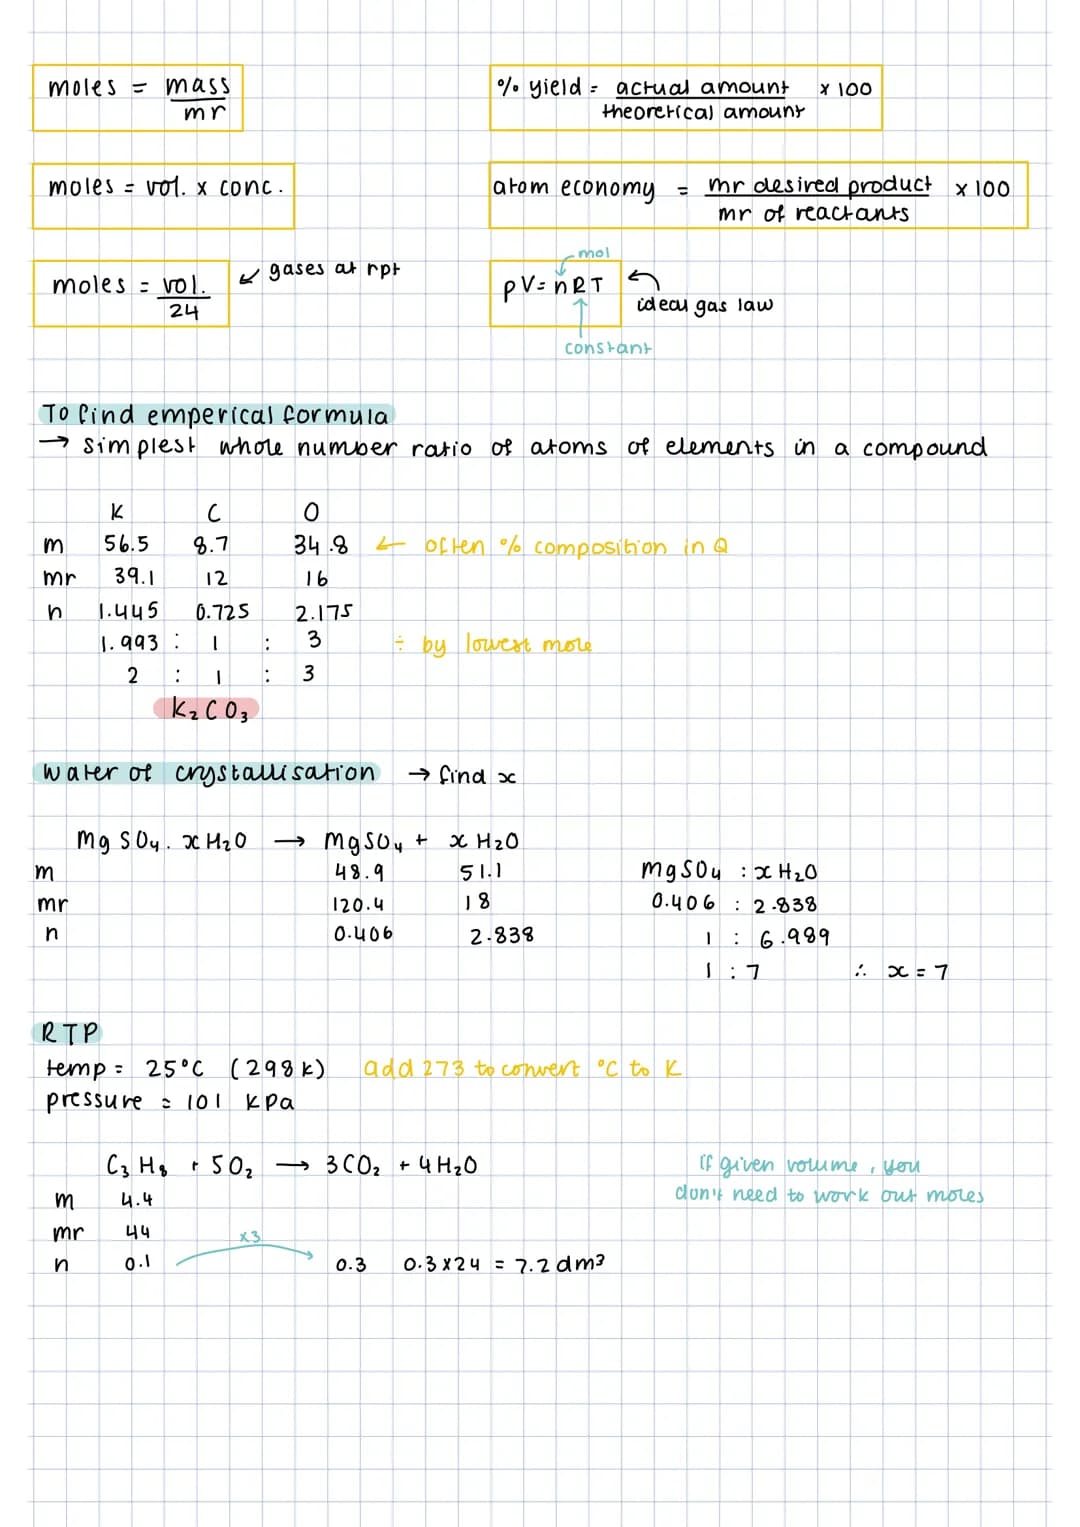 moles = mass
mr
% yield = actual amount x 100
theoretical amount
moles = vol. x conc.
atom economy = mr desired product x 100
mr of reactants
moles = vol.
24
↙ gases at rpt
mol
pV = nRT
ideal gas law
constant
To find emperical formula
→ simplest whole number ratio of atoms of elements in a compound
K C O
m 56.5 8.7 34.8 ← often % composition in Q
mr 39.1 12 16
n 1.445 0.725 2.175
1.993 : 1 : 3 ÷ by lowest mole
2 : 1 : 3
K₂CO₃
water of crystallisation → find x
MgSO₄. xH₂O → MgSO₄ + xH₂O
m 48.9 51.1
mr 120.4 18
n 0.406 2.838
MgSO₄ : xH₂O
0.406 : 2.838
1 : 6.989
1 : 7 ∴ x = 7
RTP
temp = 25°C (298K) add 273 to convert °C to K
pressure = 101 kPa
C₃H₈ + 5O₂ → 3CO₂ + 4H₂O
m 4.4
mr 44
n 0.1 x3 0.3 0.3 x 24 = 7.2 dm³
if given volume, you
don't need to work out moles